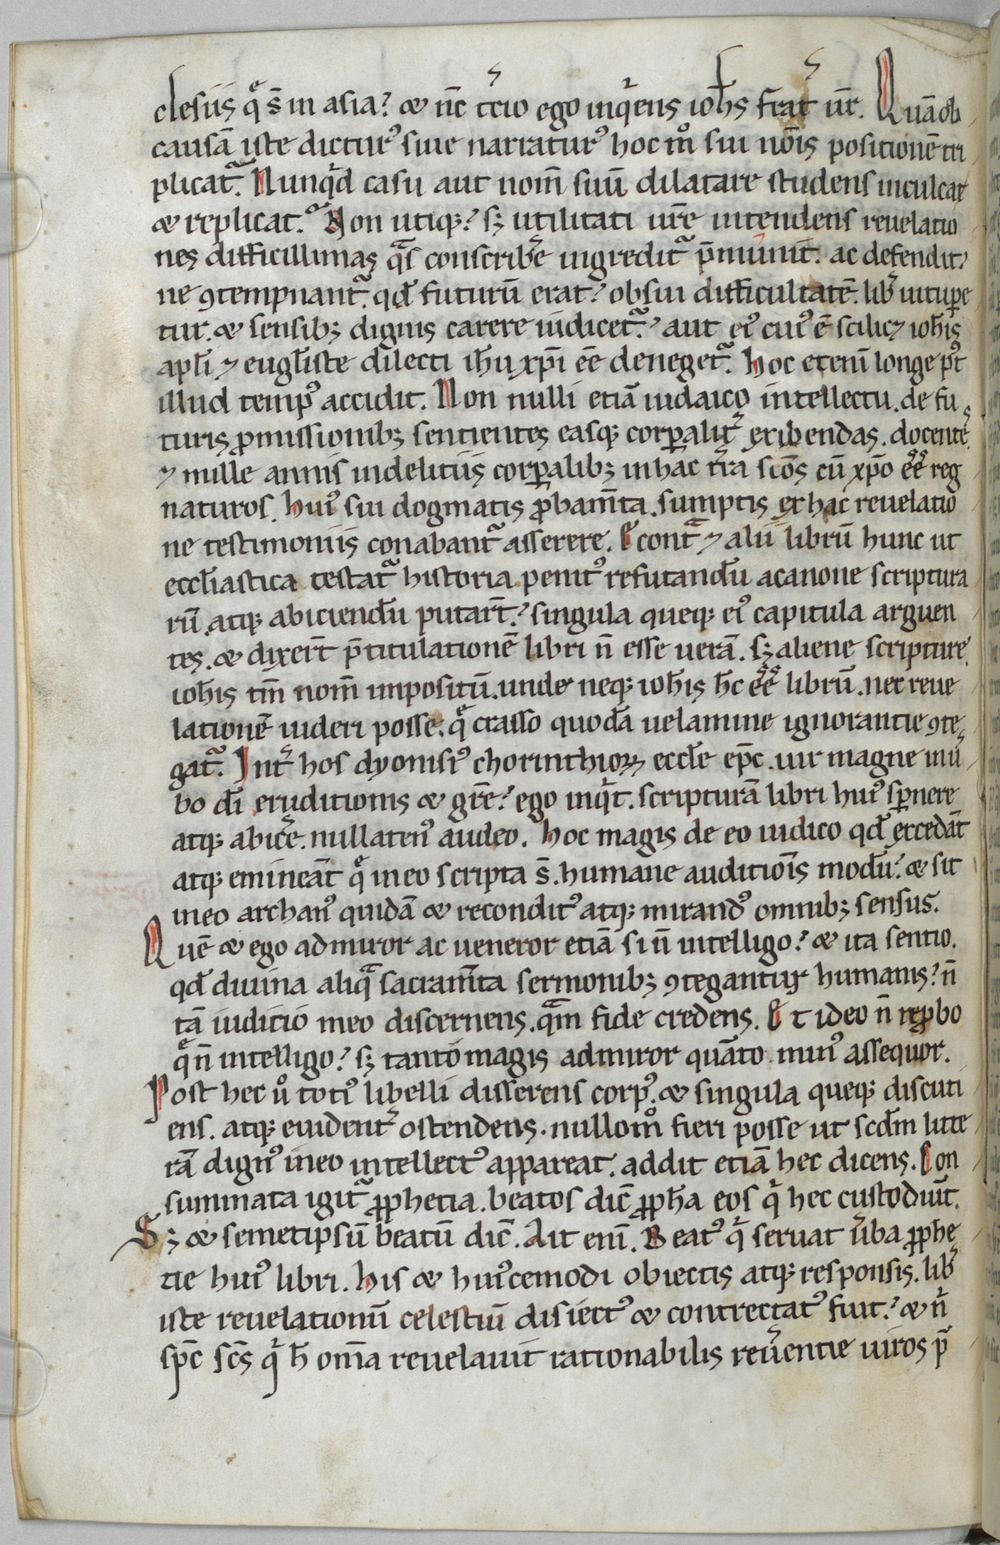 clesiis q̄ s̄ in asia? & nc̄ tc̄io ego inqͥens ioħs frat̄ ur̄. Quāob
causā iste dictur᾿ siue narratur᾿ hoc mͦ sui nōis positionē tri
plicat᷑. Nunqͥd casu aut nom̄ suū dilatare studens inculcat
& replicat᷑. Non utiqꝫ? sꝫ utilitati ur̄e intendens reuelatio
nes difficillimas qᷓs conscribe᷑ ingredit᷑ p̄munit. ac defendit?
ne ꝯtempnant᷑. qđ futurū erat? ob sui difficultatē. lib᷑ uitupe
tur. & sensibꝫ dignis carere iudicet᷑? aut ei᾿ cui᾿ ē scilicꝫ ioħis
apl̄i ⁊ eugl̄iste dilecti ih̄u xp̄i ee̅ deneget᷑. Hoc eteni̅ longe p᾿t
illud temp᾿ accidit. Non nulli etiā iudaico intellectu. de fu
turis ꝓmissionibꝫ sentientes easqꝫ corꝑalit᷑ exibendas. docentes
⁊ mille annis in delitiis corꝑalibꝫ in hac tr̄a scōs cū xp̄o ee̅ reg
naturos. hui᾿ sui dogmatis ꝓbam̄ta. sumptis ex hac reuelatio
ne testimoniis conabant᷑ asserere. E cont̄ ⁊ alii librū hunc ut
eccl̄iastica testat᷑ historia penit᾿ refutandū a canone scriptura
rū. atqꝫ abiciendū putar̄t? singula queqꝫ ei᾿ capitula arguen
tes. & dixer̄t p̄titulationē libri n̄ esse uerā. sꝫ aliene scripture
ioħis tm̄ nom̄ inpositū. unde neqꝫ ioħis hc̄ ee̅ librū. nec reue
lationē uideri posse. q̄ crasso quodā uelamine ignorantie ꝯte
gat᷑. Int᷑ hos dyonisi᾿ chorinthioꝝ eccl̄e ep̄c. uir magne in u᷑
bo dī eruditionis & gr̄e? ego inqͥt. scripturā libri hui᾿ sꝑnere
atqꝫ abice᷑. nullaten᾿ audeo. Hoc magis de eo iudico qđ excedāt
atqꝫ emineāt q̄ in eo scripta s̄. humane auditiōis modū? & sit
in eo archan᾿ quidā & recondit᾿ atqꝫ mirand᾿ omnibꝫ sensus.
Quē & ego admiror ac ueneror etiā si n̄ intelligo? & ita sentio.
qđ diuina aliqᷓ sacram̄ta sermonibꝫ ꝯtegantur humanis? n̄
tā iuditio meo discernens. qᷓm fide credens. Et ideo n̄ reꝓbo
q̄ n̄ intelligo? sꝫ tanto magis admiror quāto min᾿ assequor.
Post hec uͦ toti᾿ libelli disserens corp᾿. & singula queqꝫ discuti
ens. atqꝫ euident᷑ ostendens. nullomͦ fieri posse ut scđm litte
rā dign᾿ in eo intellect᾿ appareat. addit etiā hec dicens. Con
summata igit᷑ ꝓphetia. beatos dic̄ ꝓpħa eos qͥ hec custodiūt.
Sꝫ & semetipsū beatū dic̄. Ait eni̅. Beat᾿ qͥ seruat u᷑ba ꝓphe
tie hui᾿ libri. His & hui᾿cemodi obiectis atqꝫ responsis. lib᷑
iste reuelationū celestiū disiect᾿ & contrectat᾿ fuit? & n̄
sp̄c sc̄s qͥ ħ om̄a reuelauit rationabilis reu᷑entie uiros p̄